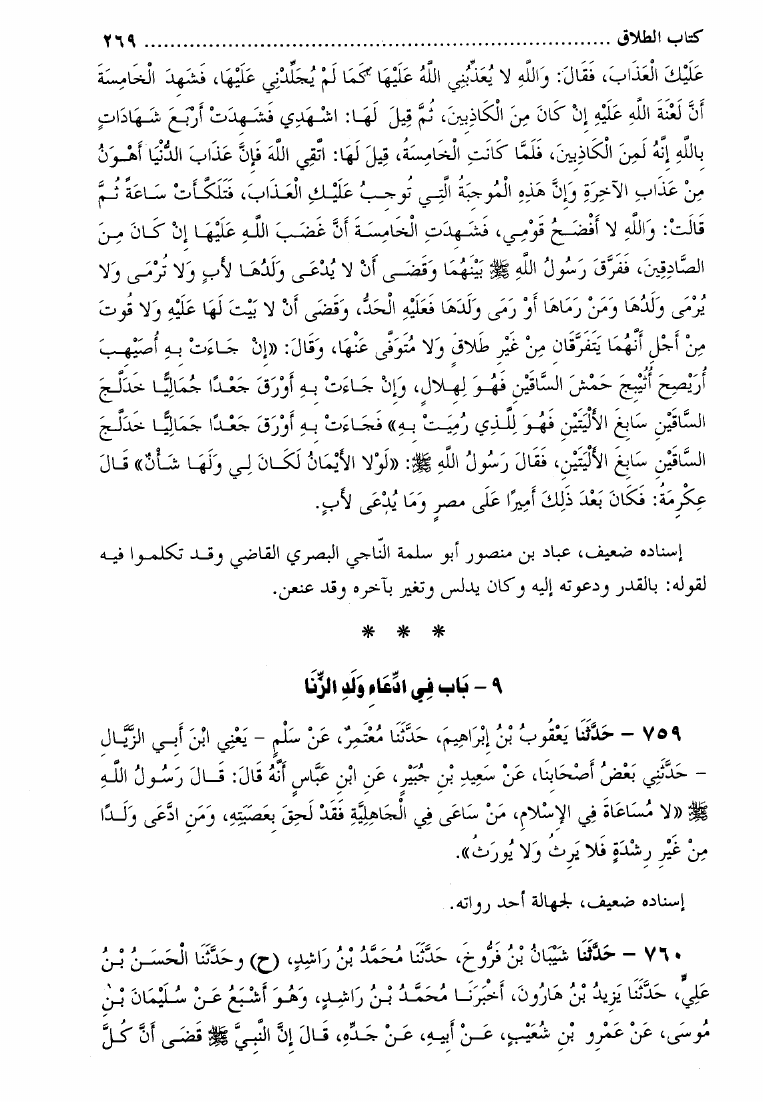 كتاب الطلاق ........................................................................ ٢٦٩
عَلَيْكَ الْعَذَابَ، فَقَالَ: وَاللَّهِ لا يُعَذِّبُنِي اللَّهُ عَلَيْهَا كَمَا لَمْ يُجَلِّدْنِي عَلَيْهَا، فَشَهِدَ الْخَامِسَةَ
أَنَّ لَعْنَةَ اللَّهِ عَلَيْهِ إِنْ كَانَ مِنَ الْكَاذِبِينَ، ثُمَّ قِيلَ لَهَا: اشْهَدِي فَشَهِدَتْ أَرْبَعَ شَهَادَاتٍ
بِاللَّهِ إِنَّهُ لَمِنَ الْكَاذِبِينَ، فَلَمَّا كَانَتِ الْخَامِسَةُ، قِيلَ لَهَا: اتَّقِي اللَّهَ فَإِنَّ عَذَابَ الدُّنْيَا أَهْوَنُ
مِنْ عَذَابِ الآخِرَةِ وَإِنَّ هَذِهِ الْمُوجِبَةُ الَّتِي تُوجِبُ عَلَيْكِ الْعَذَابَ، فَتَلَكَّأَتْ سَاعَةً ثُمَّ
قَالَتْ: وَاللَّهِ لا أَفْضَحُ قَوْمِي، فَشَهِدَتِ الْخَامِسَةَ أَنَّ غَضَبَ اللَّهِ عَلَيْهَا إِنْ كَانَ مِنَ
الصَّادِقِينَ، فَفَرَّقَ رَسُولُ اللَّهِ ﷺ بَيْنَهُمَا وَقَضَى أَنْ لا يُدْعَى وَلَدُهَا لأَبٍ وَلا تُرْمَى وَلا
يُرْمَى وَلَدُهَا وَمَنْ رَمَاهَا أَوْ رَمَى وَلَدَهَا فَعَلَيْهِ الْحَدُّ، وَقَضَى أَنْ لا بَيْتَ لَهَا عَلَيْهِ وَلا قُوتَ
مِنْ أَجْلِ أَنَّهُمَا يَتَفَرَّقَانِ مِنْ غَيْرِ طَلاقٍ وَلا مُتَوَفَّى عَنْهَا، وَقَالَ: «إِنْ جَاءَتْ بِهِ أُصَيْهِبَ
أُرَيْصِحَ أُثَيْبِجَ حَمْشَ السَّاقَيْنِ فَهُوَ لِهِلالٍ، وَإِنْ جَاءَتْ بِهِ أَوْرَقَ جَعْدًا جُمَالِيًّا خَدَلَّجَ
السَّاقَيْنِ سَابِغَ الأَلْيَتَيْنِ فَهُوَ لِلَّذِي رُمِيَتْ بِهِ» فَجَاءَتْ بِهِ أَوْرَقَ جَعْدًا جُمَالِيًّا خَدَلَّجَ
السَّاقَيْنِ سَابِغَ الأَلْيَتَيْنِ، فَقَالَ رَسُولُ اللَّهِ ﷺ: «لَوْلا الأَيْمَانُ لَكَانَ لِي وَلَهَا شَأْنٌ» قَالَ
عِكْرِمَةُ: فَكَانَ بَعْدَ ذَلِكَ أَمِيرًا عَلَى مصرٍ وَمَا يُدْعَى لأَبٍ.
إسناده ضعيف، عباد بن منصور أبو سلمة النّاجي البصري القاضي وقد تكلموا فيه
لقوله: بالقدر ودعوته إليه وكان يدلس وتغير بآخره وقد عنعن.
* * *
٩ - بَاب فِي ادِّعَاءِ وَلَدِ الزِّنَا
٧٥٩ - حَدَّثَنَا يَعْقُوبُ بْنُ إِبْرَاهِيمَ، حَدَّثَنَا مُعْتَمِرٌ، عَنْ سَلْمٍ - يَعْنِي ابْنَ أَبِي الزَّيَّالِ
- حَدَّثَنِي بَعْضُ أَصْحَابِنَا، عَنْ سَعِيدِ بْنِ جُبَيْرٍ، عَنِ ابْنِ عَبَّاسٍ أَنَّهُ قَالَ: قَالَ رَسُولُ اللَّهِ
ﷺ «لا مُسَاعَاةَ فِي الإِسْلامِ، مَنْ سَاعَى فِي الْجَاهِلِيَّةِ فَقَدْ لَحِقَ بِعَصَبَتِهِ، وَمَنِ ادَّعَى وَلَدًا
مِنْ غَيْرِ رِشْدَةٍ فَلا يَرِثُ وَلا يُورَثُ».
إسناده ضعيف، لجهالة أحد رواته.
٧٦٠ - حَدَّثَنَا شَيْبَانُ بْنُ فَرُّوخَ، حَدَّثَنَا مُحَمَّدُ بْنُ رَاشِدٍ، (ح) وحَدَّثَنَا الْحَسَنُ بْنُ
عَلِيٍّ، حَدَّثَنَا يَزِيدُ بْنُ هَارُونَ، أَخْبَرَنَا مُحَمَّدُ بْنُ رَاشِدٍ، وَهُوَ أَشْبَعُ عَنْ سُلَيْمَانَ بْنِ
مُوسَى، عَنْ عَمْرِو بْنِ شُعَيْبٍ، عَنْ أَبِيهِ، عَنْ جَدِّهِ، قَالَ إِنَّ النَّبِيَّ ﷺ قَضَى أَنَّ كُلَّ